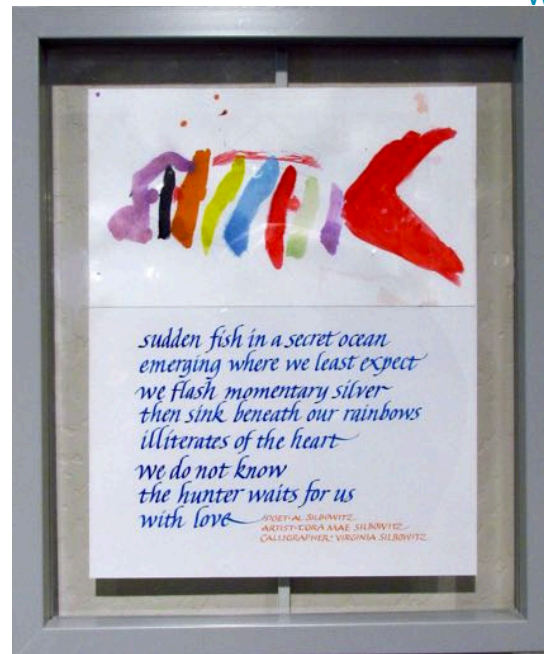 sudden fish in a secret ocean
emerging where we least expect
we flash momentary silver
then sink beneath our rainbows
illiterates of the heart
we do not know
the hunter waits for us
with love
POET-AL SILBOWITZ
ARTIST-CORA MAE SILBOWITZ
CALLIGRAPHER-VIRGINIA SILBOWITZ